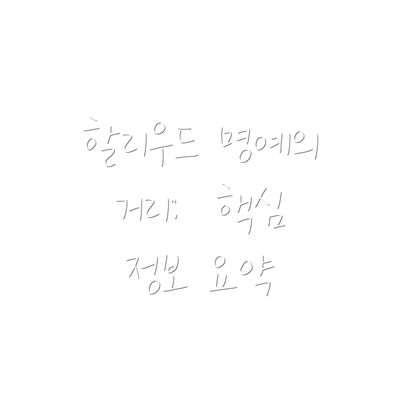 할리우드 명예의
거리: 핵심
정보 요약